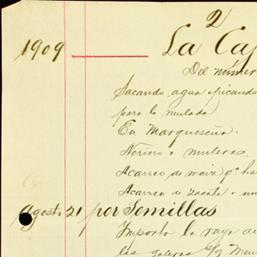 2
1909 La Cap
Del número
Sacando agua opicando
para la mulada
En Marqueseña
Nerios o muleras.
Acarreo de maiz qe ha
Acarreo de zacate o
Agosto 21 por Semillas
Importo la raya de
las galeras